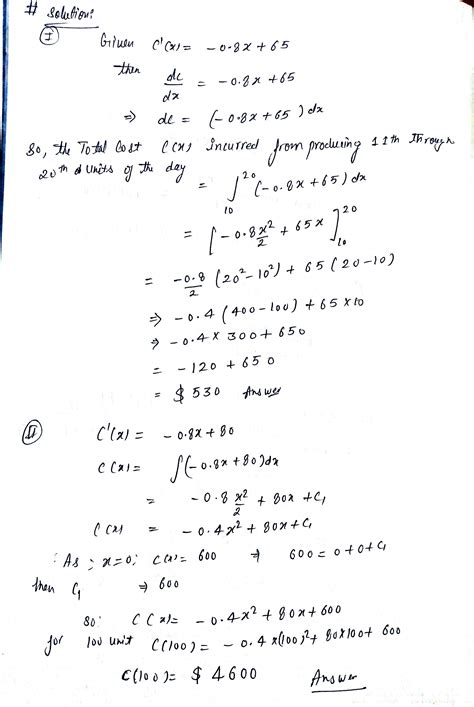 # Solution:
(I) Given C'(x) = -0.8x + 65
then dc/dx = -0.8x + 65
⇒ dc = (-0.8x + 65) dx
So, the Total Cost C(x) incurred from producing 11th through
20th d Units of the day
= ∫₁₀²⁰ (-0.8x + 65) dx
= [-0.8 x²/2 + 65x]₁₀²⁰
= -0.8/2 (20² - 10²) + 65 (20 - 10)
⇒ -0.4 (400 - 100) + 65 × 10
⇒ -0.4 × 300 + 650
= -120 + 650
= $ 530 Answer
(II) C'(x) = -0.8x + 80
C(x) = ∫(-0.8x + 80) dx
= -0.8 x²/2 + 80x + C₁
C(x) = -0.4x² + 80x + C₁
∴ As ; x=0; C(x) = 600 ⇒ 600 = 0 + 0 + C₁
then C₁ ⇒ 600
So: C(x) = -0.4x² + 80x + 600
for 100 unit C(100) = -0.4 × (100)² + 80×100 + 600
C(100) = $ 4600 Answer